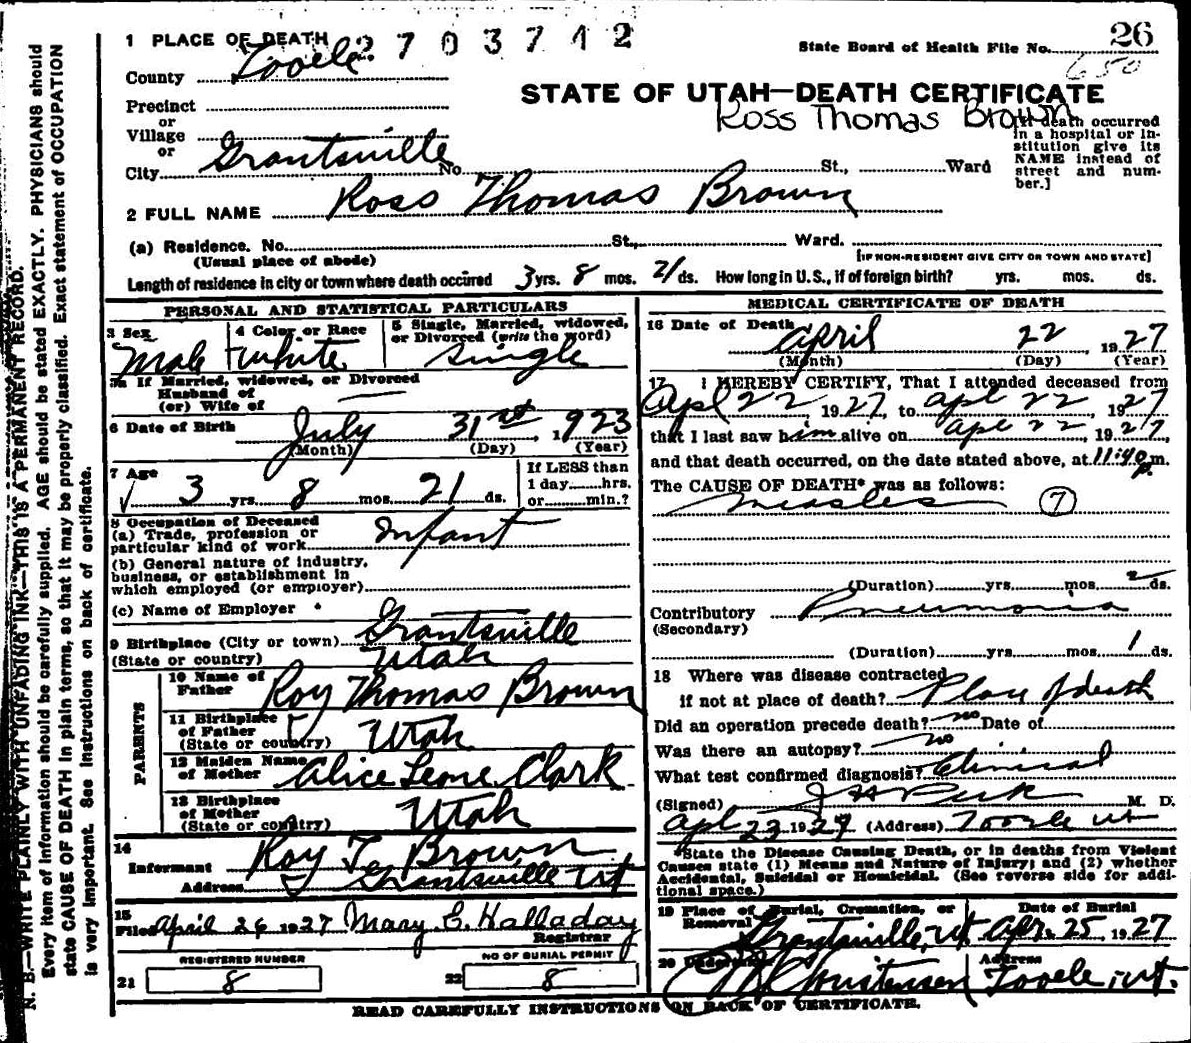 26
1 PLACE OF DEATH 2703712
State Board of Health File No.
650
County Tooele
STATE OF UTAH—DEATH CERTIFICATE
Ross Thomas Brown
Precinct
or
Village
or
City Grantsville No. St., Ward
[If death occurred in a hospital or institution give its NAME instead of street and number.]
2 FULL NAME Ross Thomas Brown
(a) Residence. No. St., Ward.
(Usual place of abode) [IF NON-RESIDENT GIVE CITY OR TOWN AND STATE]
Length of residence in city or town where death occured 3 yrs. 8 mos. 21 ds. How long in U.S., if of foreign birth? yrs. mos. ds.
PERSONAL AND STATISTICAL PARTICULARS
3 Sex 4 Color or Race 5 Single, Married, widowed, or Divorced (write the word)
Male White Single
3a If Married, widowed, or Divorced
Husband of
(or) Wife of
6 Date of Birth July 31st, 1923
(Month) (Day) (Year)
7 Age 3 yrs. 8 mos. 21 ds.
If LESS than
1 day hrs.
or min.?
8 Occupation of Deceased
(a) Trade, profession or
particular kind of work Infant
(b) General nature of industry,
business, or establishment in
which employed (or employer)
(c) Name of Employer
9 Birthplace (City or town) Grantsville
(State or country) Utah
PARENTS
10 Name of Father Roy Thomas Brown
11 Birthplace of Father
(State or country) Utah
12 Maiden Name of Mother Alice Leone Clark
13 Birthplace of Mother
(State or country) Utah
14
Informant Roy T. Brown
Address Grantsville Ut
15
Filed April 26 1927 Mary E. Halladay
Registrar
REGISTERED NUMBER NO OF BURIAL PERMIT
21 8 22 8
MEDICAL CERTIFICATE OF DEATH
16 Date of Death April 22, 1927
(Month) (Day) (Year)
17 I HEREBY CERTIFY, That I attended deceased from
Apl 22, 1927, to Apl 22, 1927
that I last saw him alive on Apl 22, 1927,
and that death occurred, on the date stated above, at 11:40 p.m.
The CAUSE OF DEATH* was as follows:
Measles 7
(Duration) yrs. mos. 2 ds.
Contributory Pneumonia
(Secondary)
(Duration) yrs. mos. 1 ds.
18 Where was disease contracted
if not at place of death? Place of death
Did an operation precede death? no Date of
Was there an autopsy? no
What test confirmed diagnosis? Clinical
(Signed) J H Peck M. D.
Apl 23, 1927 (Address) Tooele Ut
*State the Disease Causing Death, or in deaths from Violent
Causes state (1) Means and Nature of Injury; and (2) whether
Accidental, Suicidal or Homicidal. (See reverse side for addi-
tional space.)
19 Place of Burial, Cremation, or Removal Date of Burial
Grantsville, Ut Apr. 25, 1927
20 Undertaker Address
Christensen Tooele, Ut.
READ CAREFULLY INSTRUCTIONS ON BACK OF CERTIFICATE.
N. B.—WRITE PLAINLY WITH UNFADING INK—THIS IS A PERMANENT RECORD.
Every item of information should be carefully supplied. AGE should be stated EXACTLY. PHYSICIANS should
state CAUSE OF DEATH in plain terms, so that it may be properly classified. Exact statement of OCCUPATION
is very important. See instructions on back of certificate.